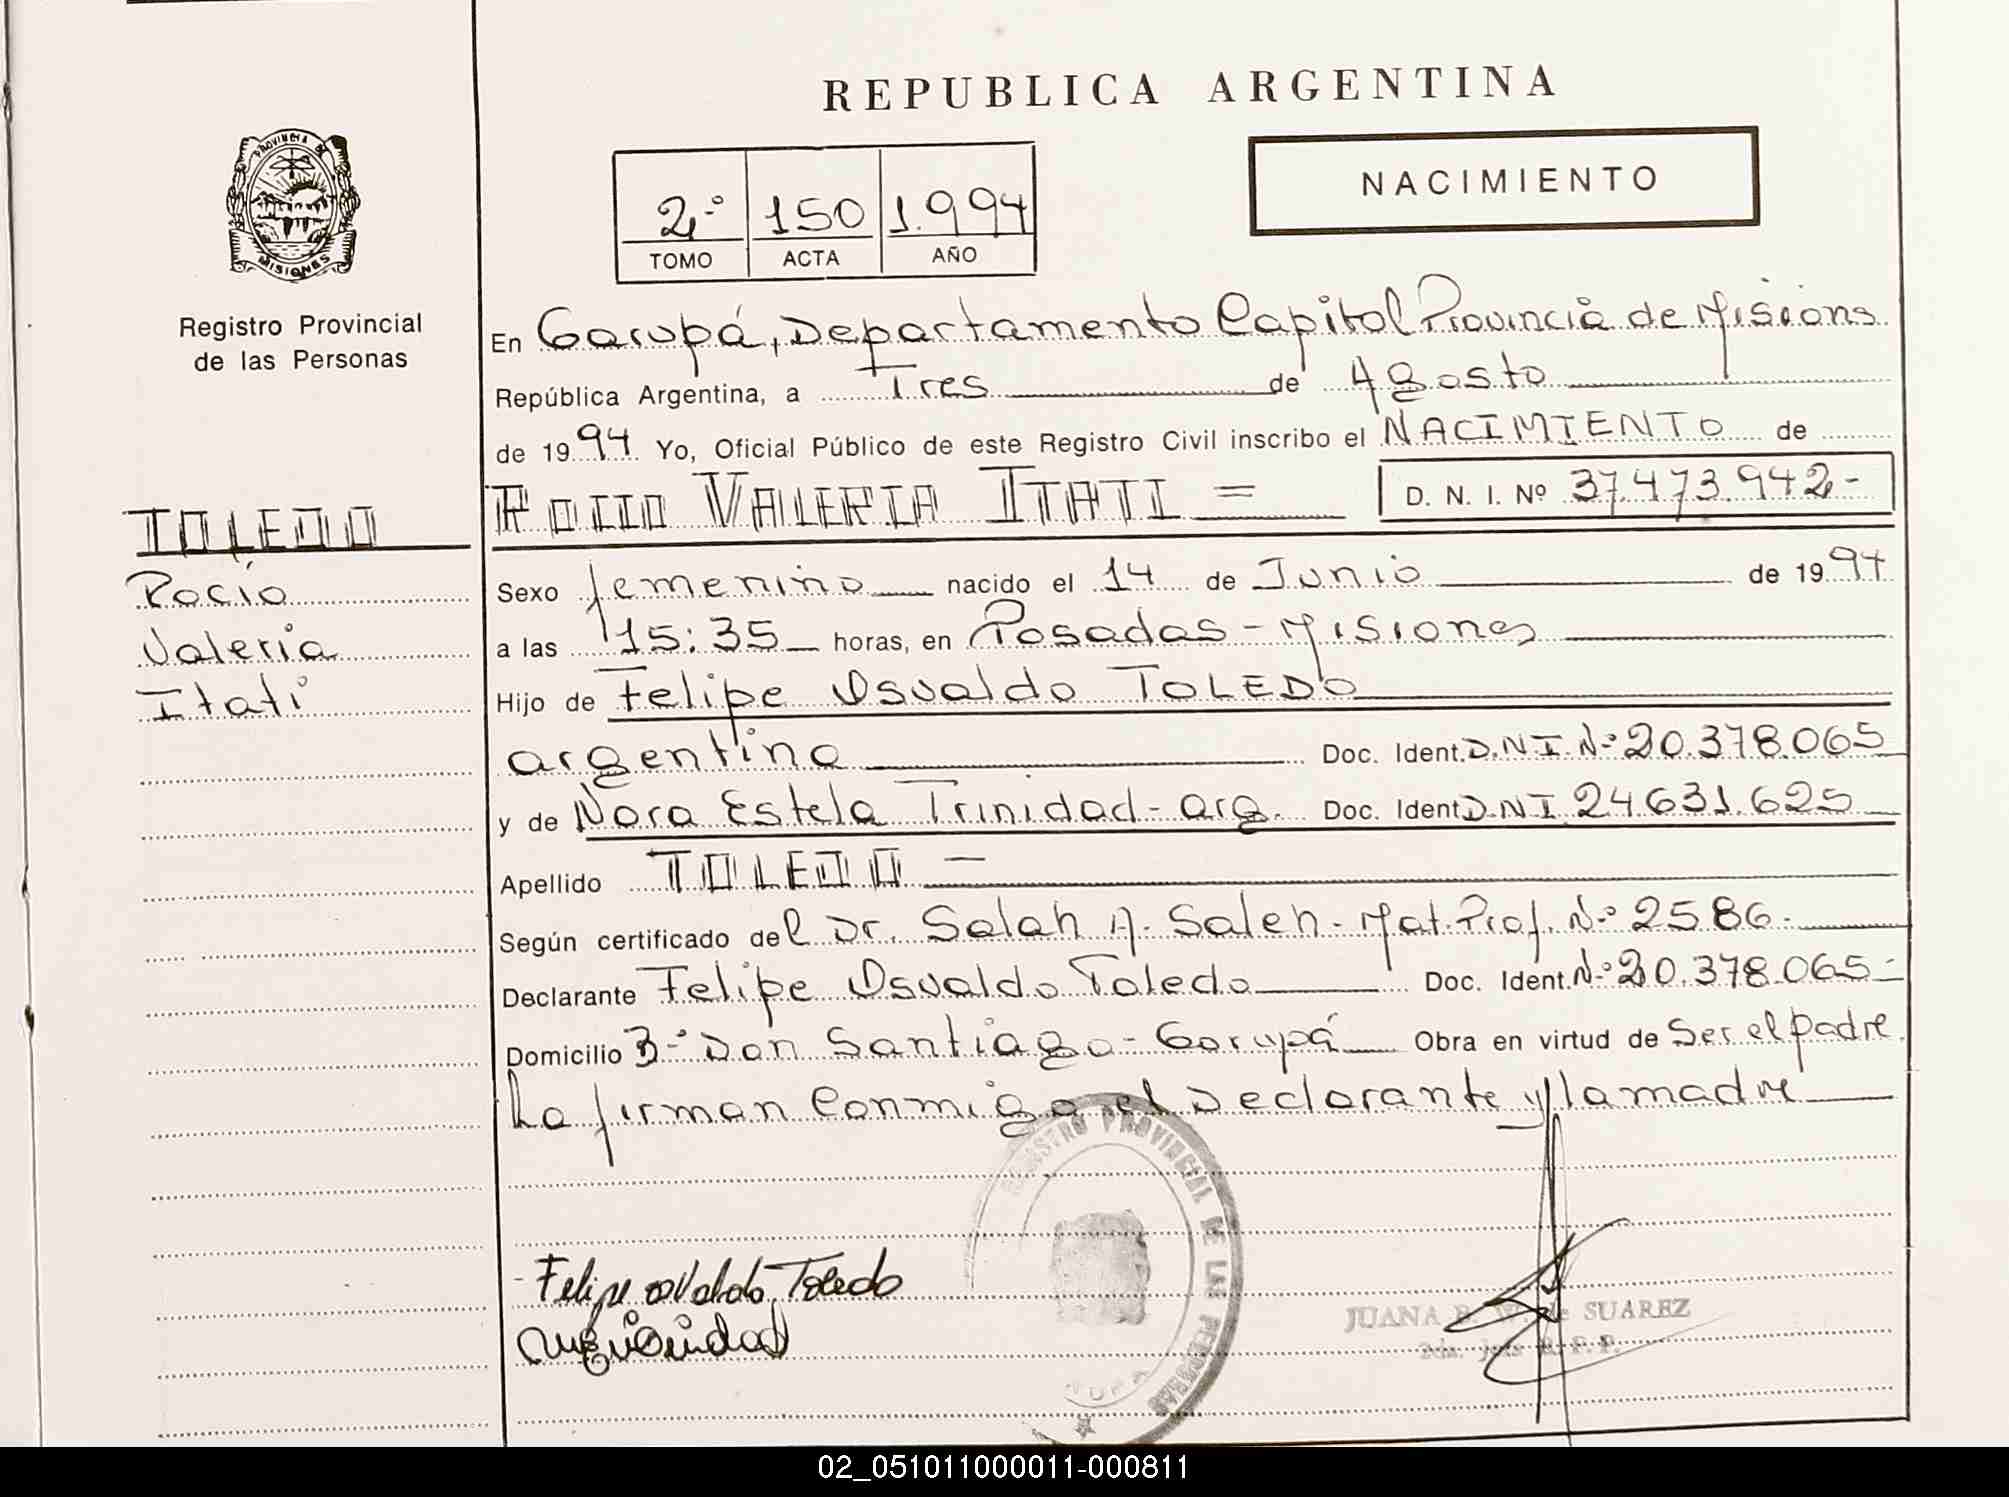 REPUBLICA ARGENTINA
PROVINCIA DE
MISIONES
Registro Provincial
de las Personas
2º 150 1.994
TOMO ACTA AÑO
NACIMIENTO
En Garupá, Departamento Capital Provincia de Misiones
República Argentina, a Tres de Agosto
de 1994 Yo, Oficial Público de este Registro Civil inscribo el NACIMIENTO de
ROCIO VALERIA ITATI = D. N. I. Nº 37.473.942-
TOLEDO
Rocío
Valeria
Itatí
Sexo femenino nacido el 14 de Junio de 1994
a las 15:35 horas, en Posadas - Misiones
Hijo de Felipe Osvaldo TOLEDO
argentino Doc. Ident. D.N.I. Nº 20.378.065
y de Nora Estela Trinidad - arg. Doc. Ident D.N.I. 24.631.625
Apellido TOLEDO -
Según certificado del Dr. Salah A. Saleh - Mat. Prof. Nº 2586.
Declarante Felipe Osvaldo Toledo Doc. Ident. Nº 20.378.065-
Domicilio Bº Don Santiago - Garupá Obra en virtud de Ser el padre
La firman Conmigo el Declarante y la madre
REGISTRO PROVINCIAL DE LAS PERSONAS
Felipe Osvaldo Toledo
JUANA B. W. de SUAREZ
02_051011000011-000811